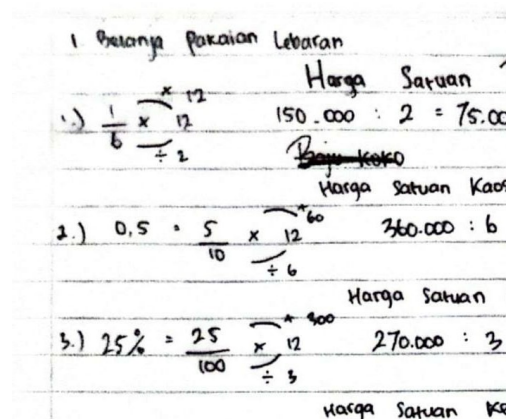 1. Belanja Pakaian Lebaran
Harga Satuan
× 12
1.) 1/6 × 12 150.000 : 2 = 75.00
÷ 2
Baju Koko
Harga Satuan Kaos
× 60
2.) 0,5 = 5/10 × 12 360.000 : 6
÷ 6
Harga Satuan
× 300
3.) 25% = 25/100 × 12 270.000 : 3
÷ 3
Harga Satuan Ke